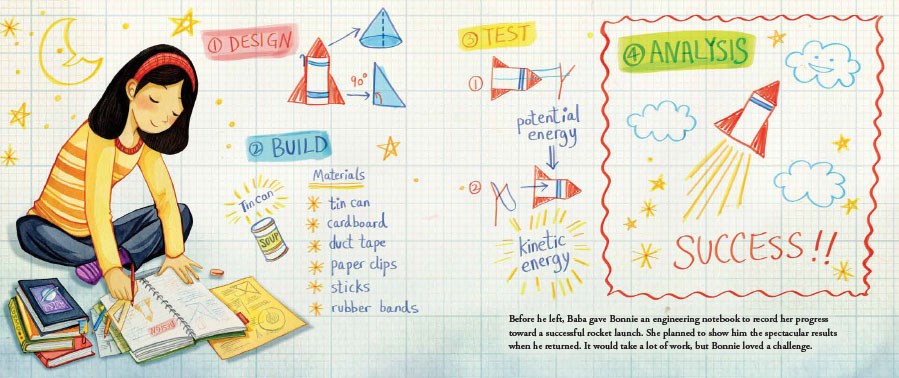 ① DESIGN
90°
② BUILD
Tin can
SOUP
Materials
* tin can
* cardboard
* duct tape
* paper clips
* sticks
* rubber bands
③ TEST
①
potential
energy
②
kinetic
energy
④ ANALYSIS
SUCCESS!!
Before he left, Baba gave Bonnie an engineering notebook to record her progress
toward a successful rocket launch. She planned to show him the spectacular results
when he returned. It would take a lot of work, but Bonnie loved a challenge.